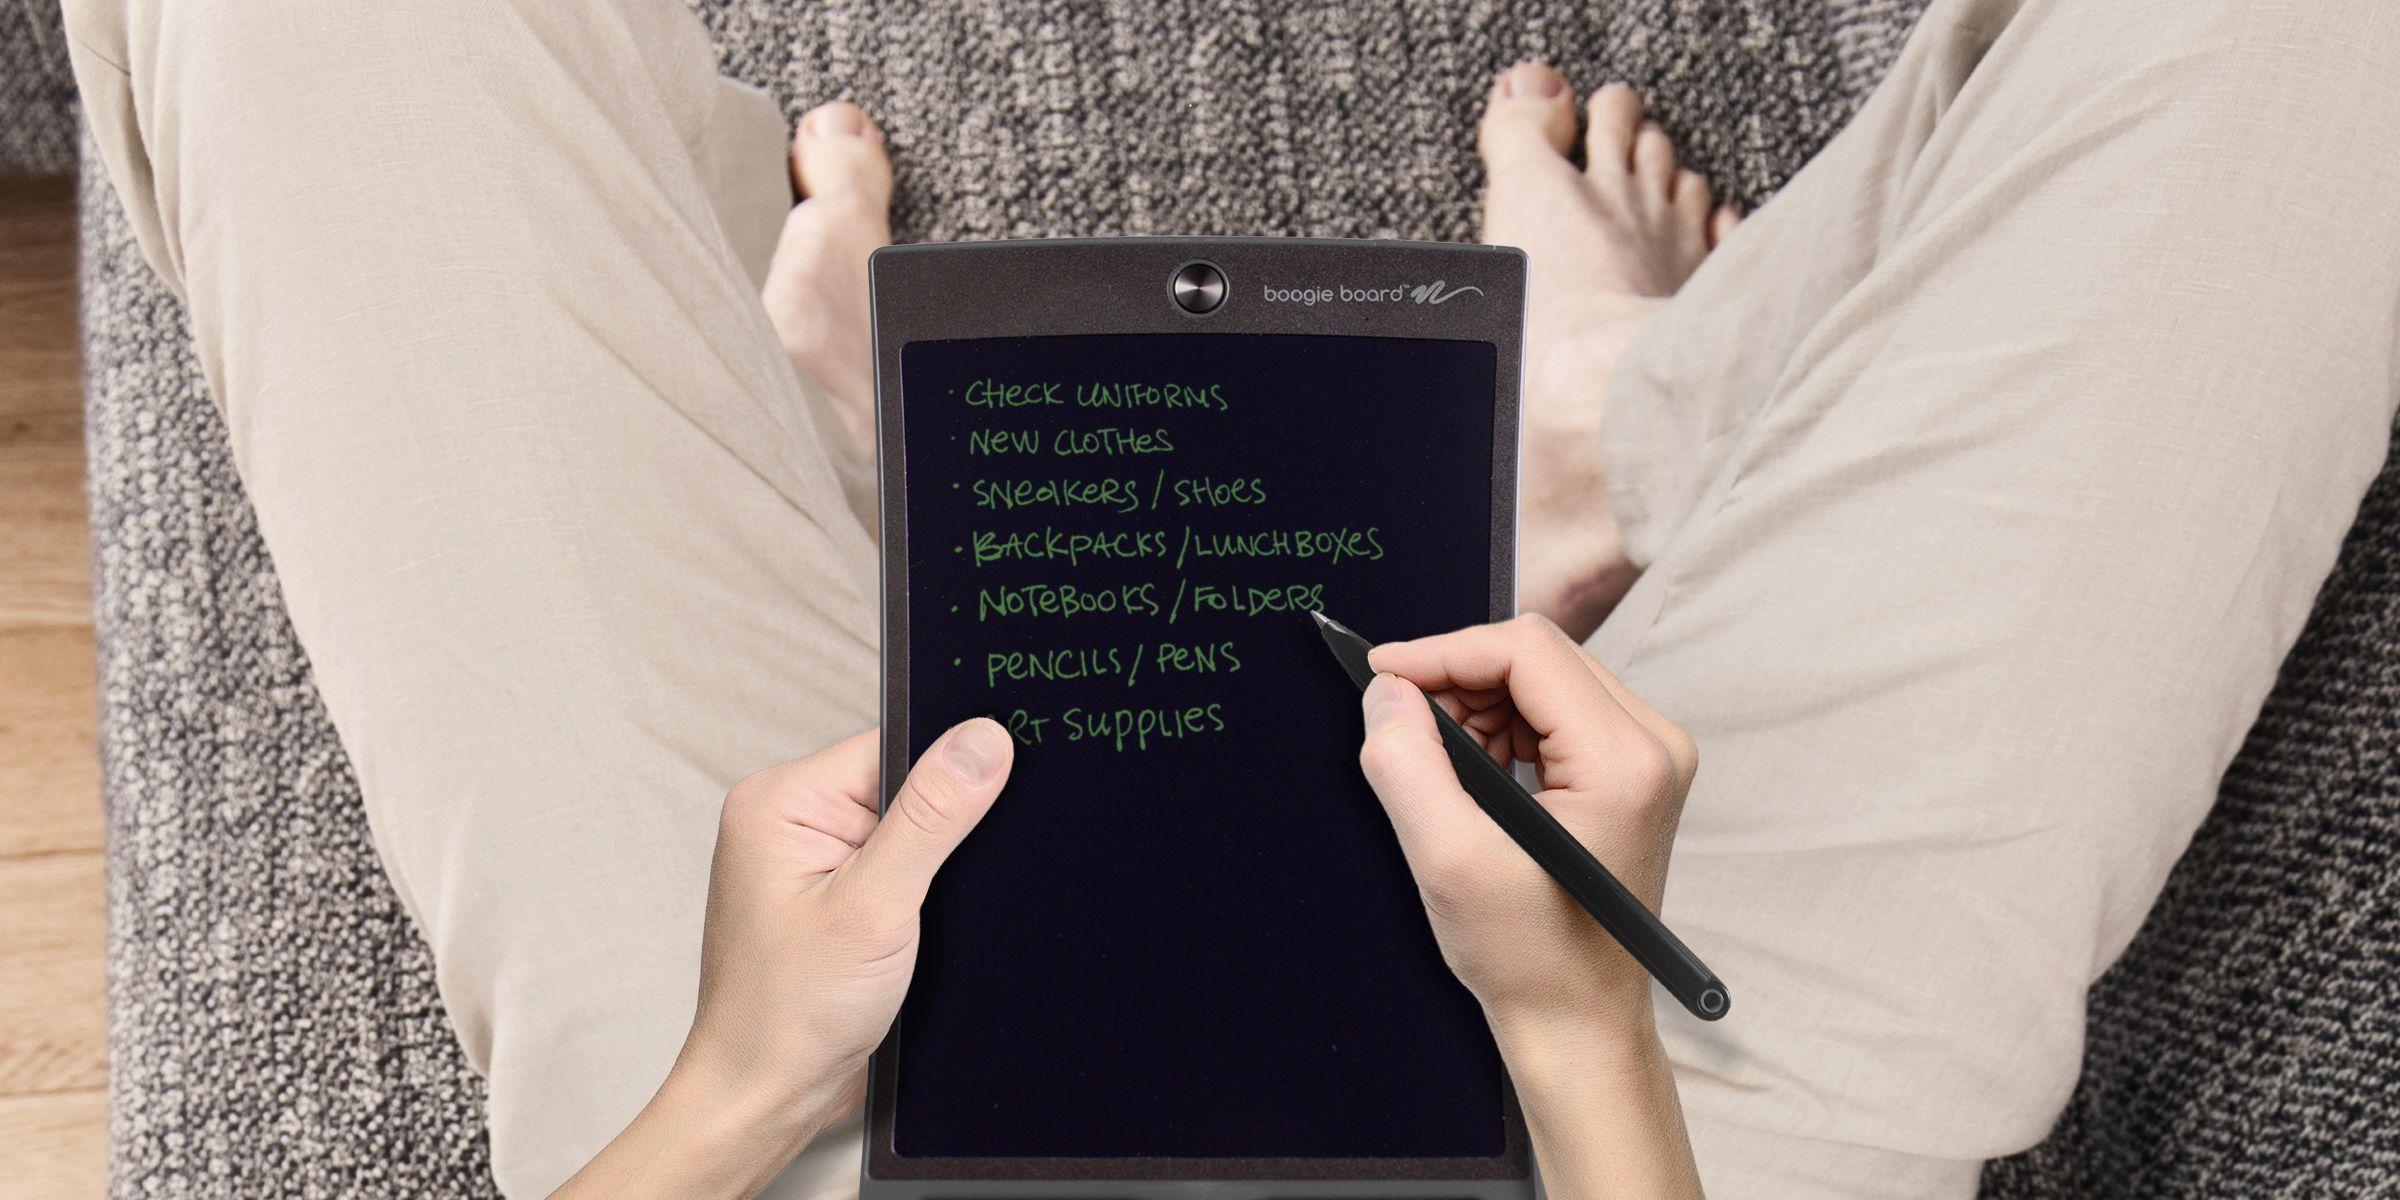 boogie board™
· CHECK UNIFORMS
· NEW CLOTHES
· SNEAKERS / SHOES
· BACKPACKS / LUNCHBOXES
· NOTEBOOKS / FOLDERS
· PENCILS / PENS
SUPPLIES